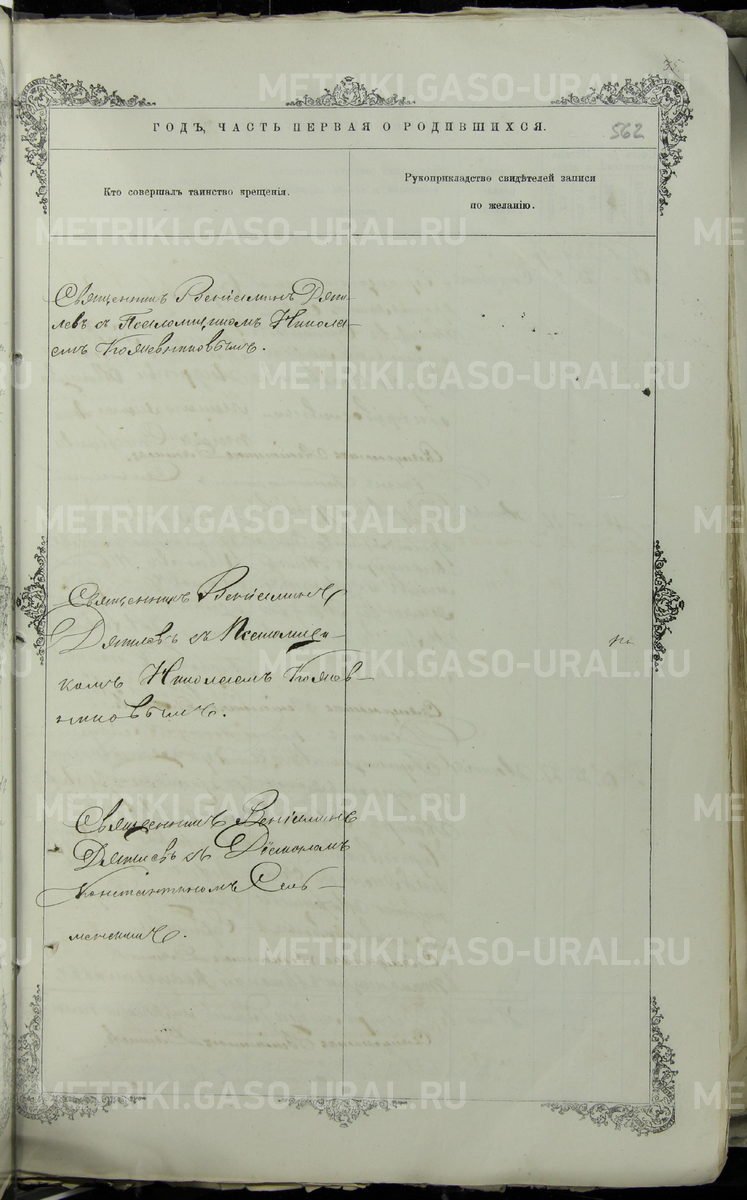 ГОДЪ, ЧАСТЬ ПЕРВАЯ О РОДИВШИХСЯ.
562
Кто совершалъ таинство крещенія.
Рукоприкладство свидѣтелей записи
по желанію.
Священникъ Веніаминъ Дяги-
левъ съ Псаломщикомъ Никола-
емъ Кожевниковымъ.
Священникъ Веніаминъ
Дягилевъ съ Псаломщи-
комъ Николаемъ Кожев-
никовымъ.
Священникъ Веніаминъ
Дягилевъ съ Діакономъ
Константиномъ Сель-
менскимъ.
METRIKI.GASO-URAL.RU